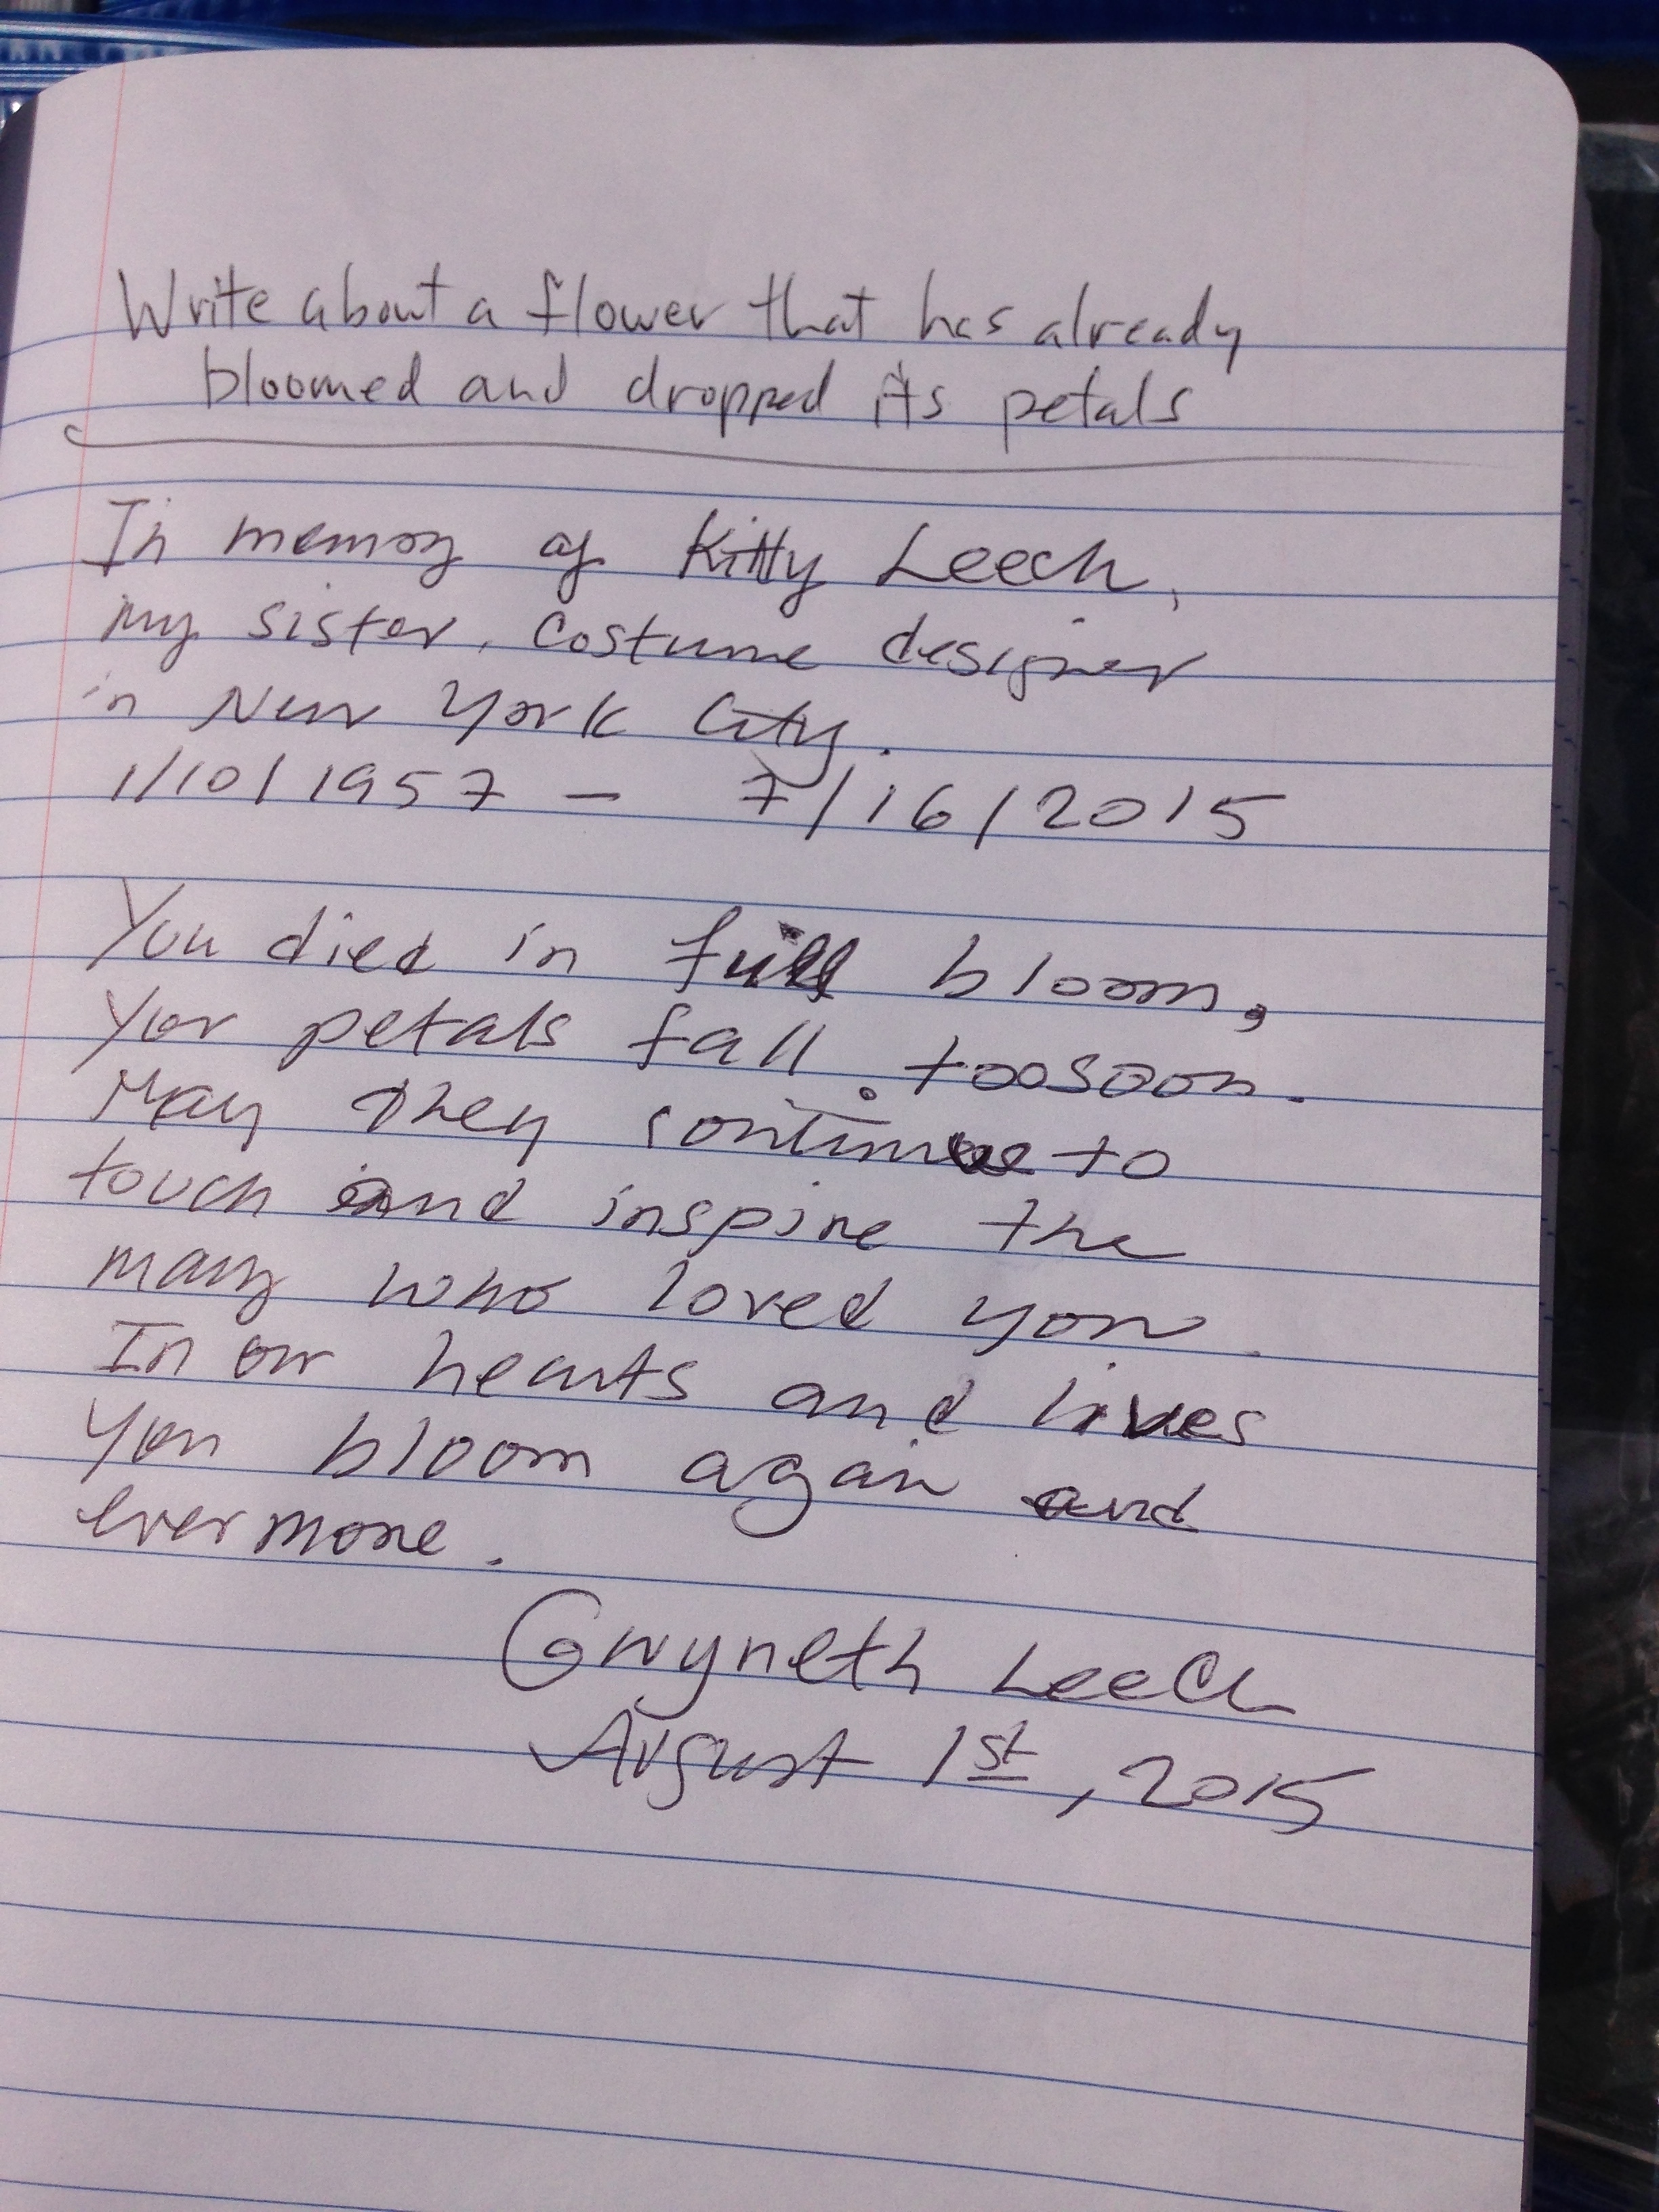 Write about a flower that has already
bloomed and dropped its petals
In memory of Kitty Leech,
my sister, Costume designer
in New York City.
1/10/1957 - 7/16/2015
You died in full bloom,
Your petals fall too soon.
May they continue to
touch and inspire the
many who loved you.
In our hearts and lives
You bloom again and
evermore.
Gwyneth Leech
August 1st, 2015